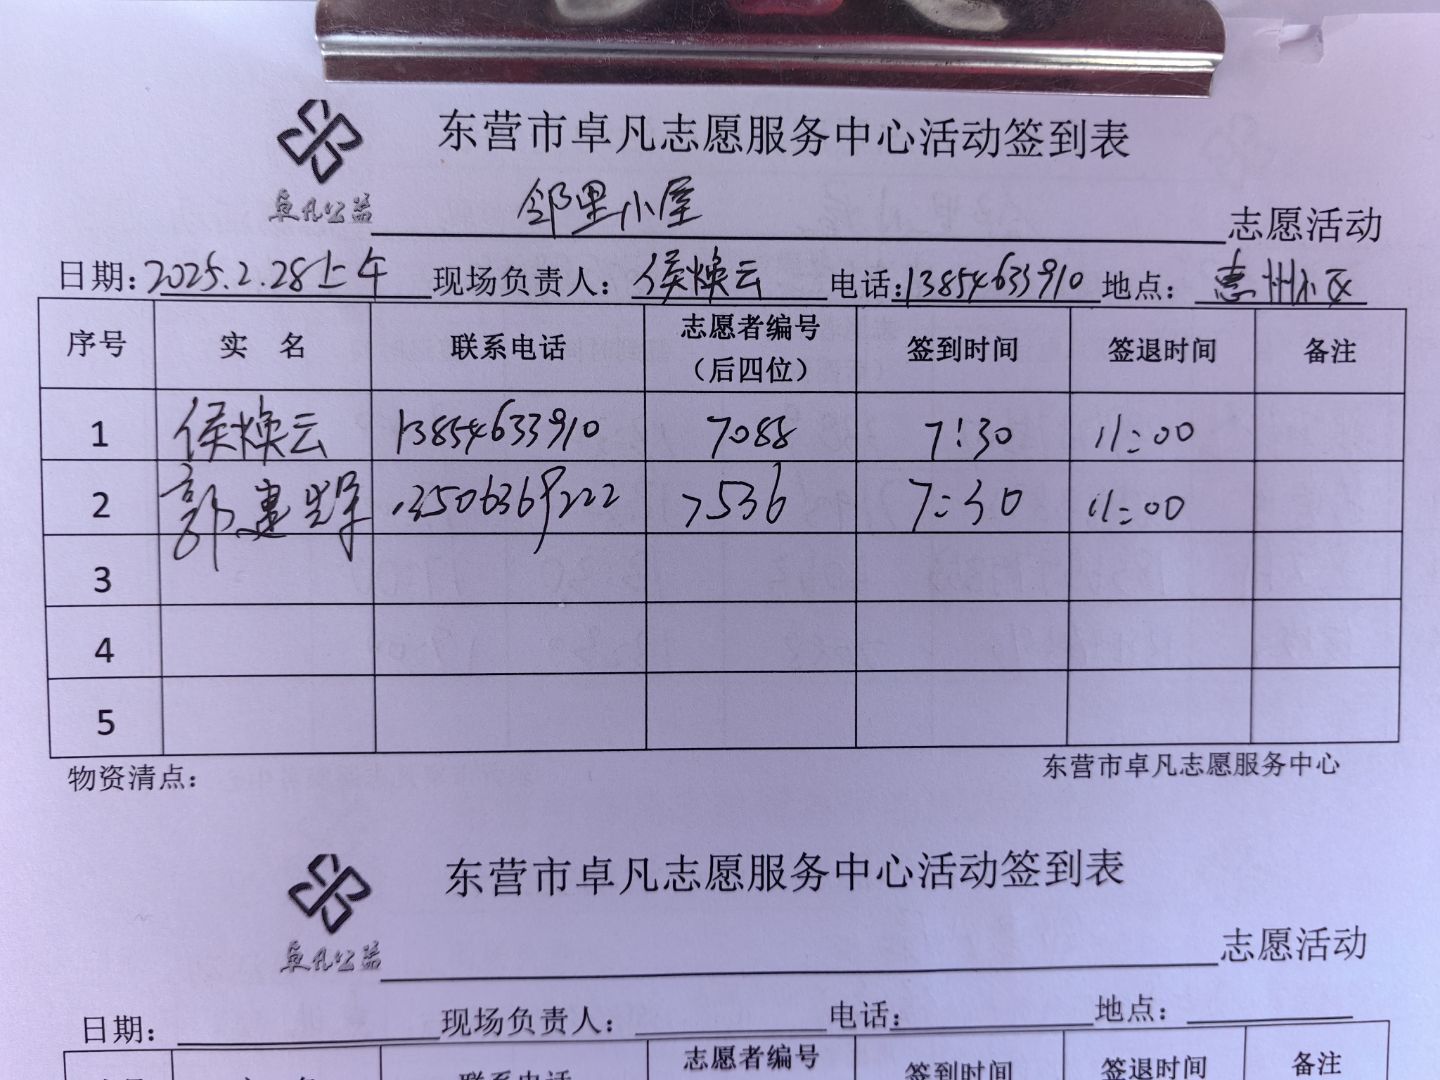 东营市卓凡志愿服务中心活动签到表
卓凡公益 邻里小屋 志愿活动
日期：2025.2.28上午 现场负责人：侯焕云 电话：13854633910 地点：惠州小区
序号 实 名 联系电话 志愿者编号（后四位） 签到时间 签退时间 备注
1 侯焕云 13854633910 7088 7:30 11:00
2 郭建辉 13506369222 7536 7:30 11:00
3
4
5
物资清点： 东营市卓凡志愿服务中心
东营市卓凡志愿服务中心活动签到表
卓凡公益 志愿活动
日期： 现场负责人： 电话： 地点：
志愿者编号 签到时间 签退时间 备注